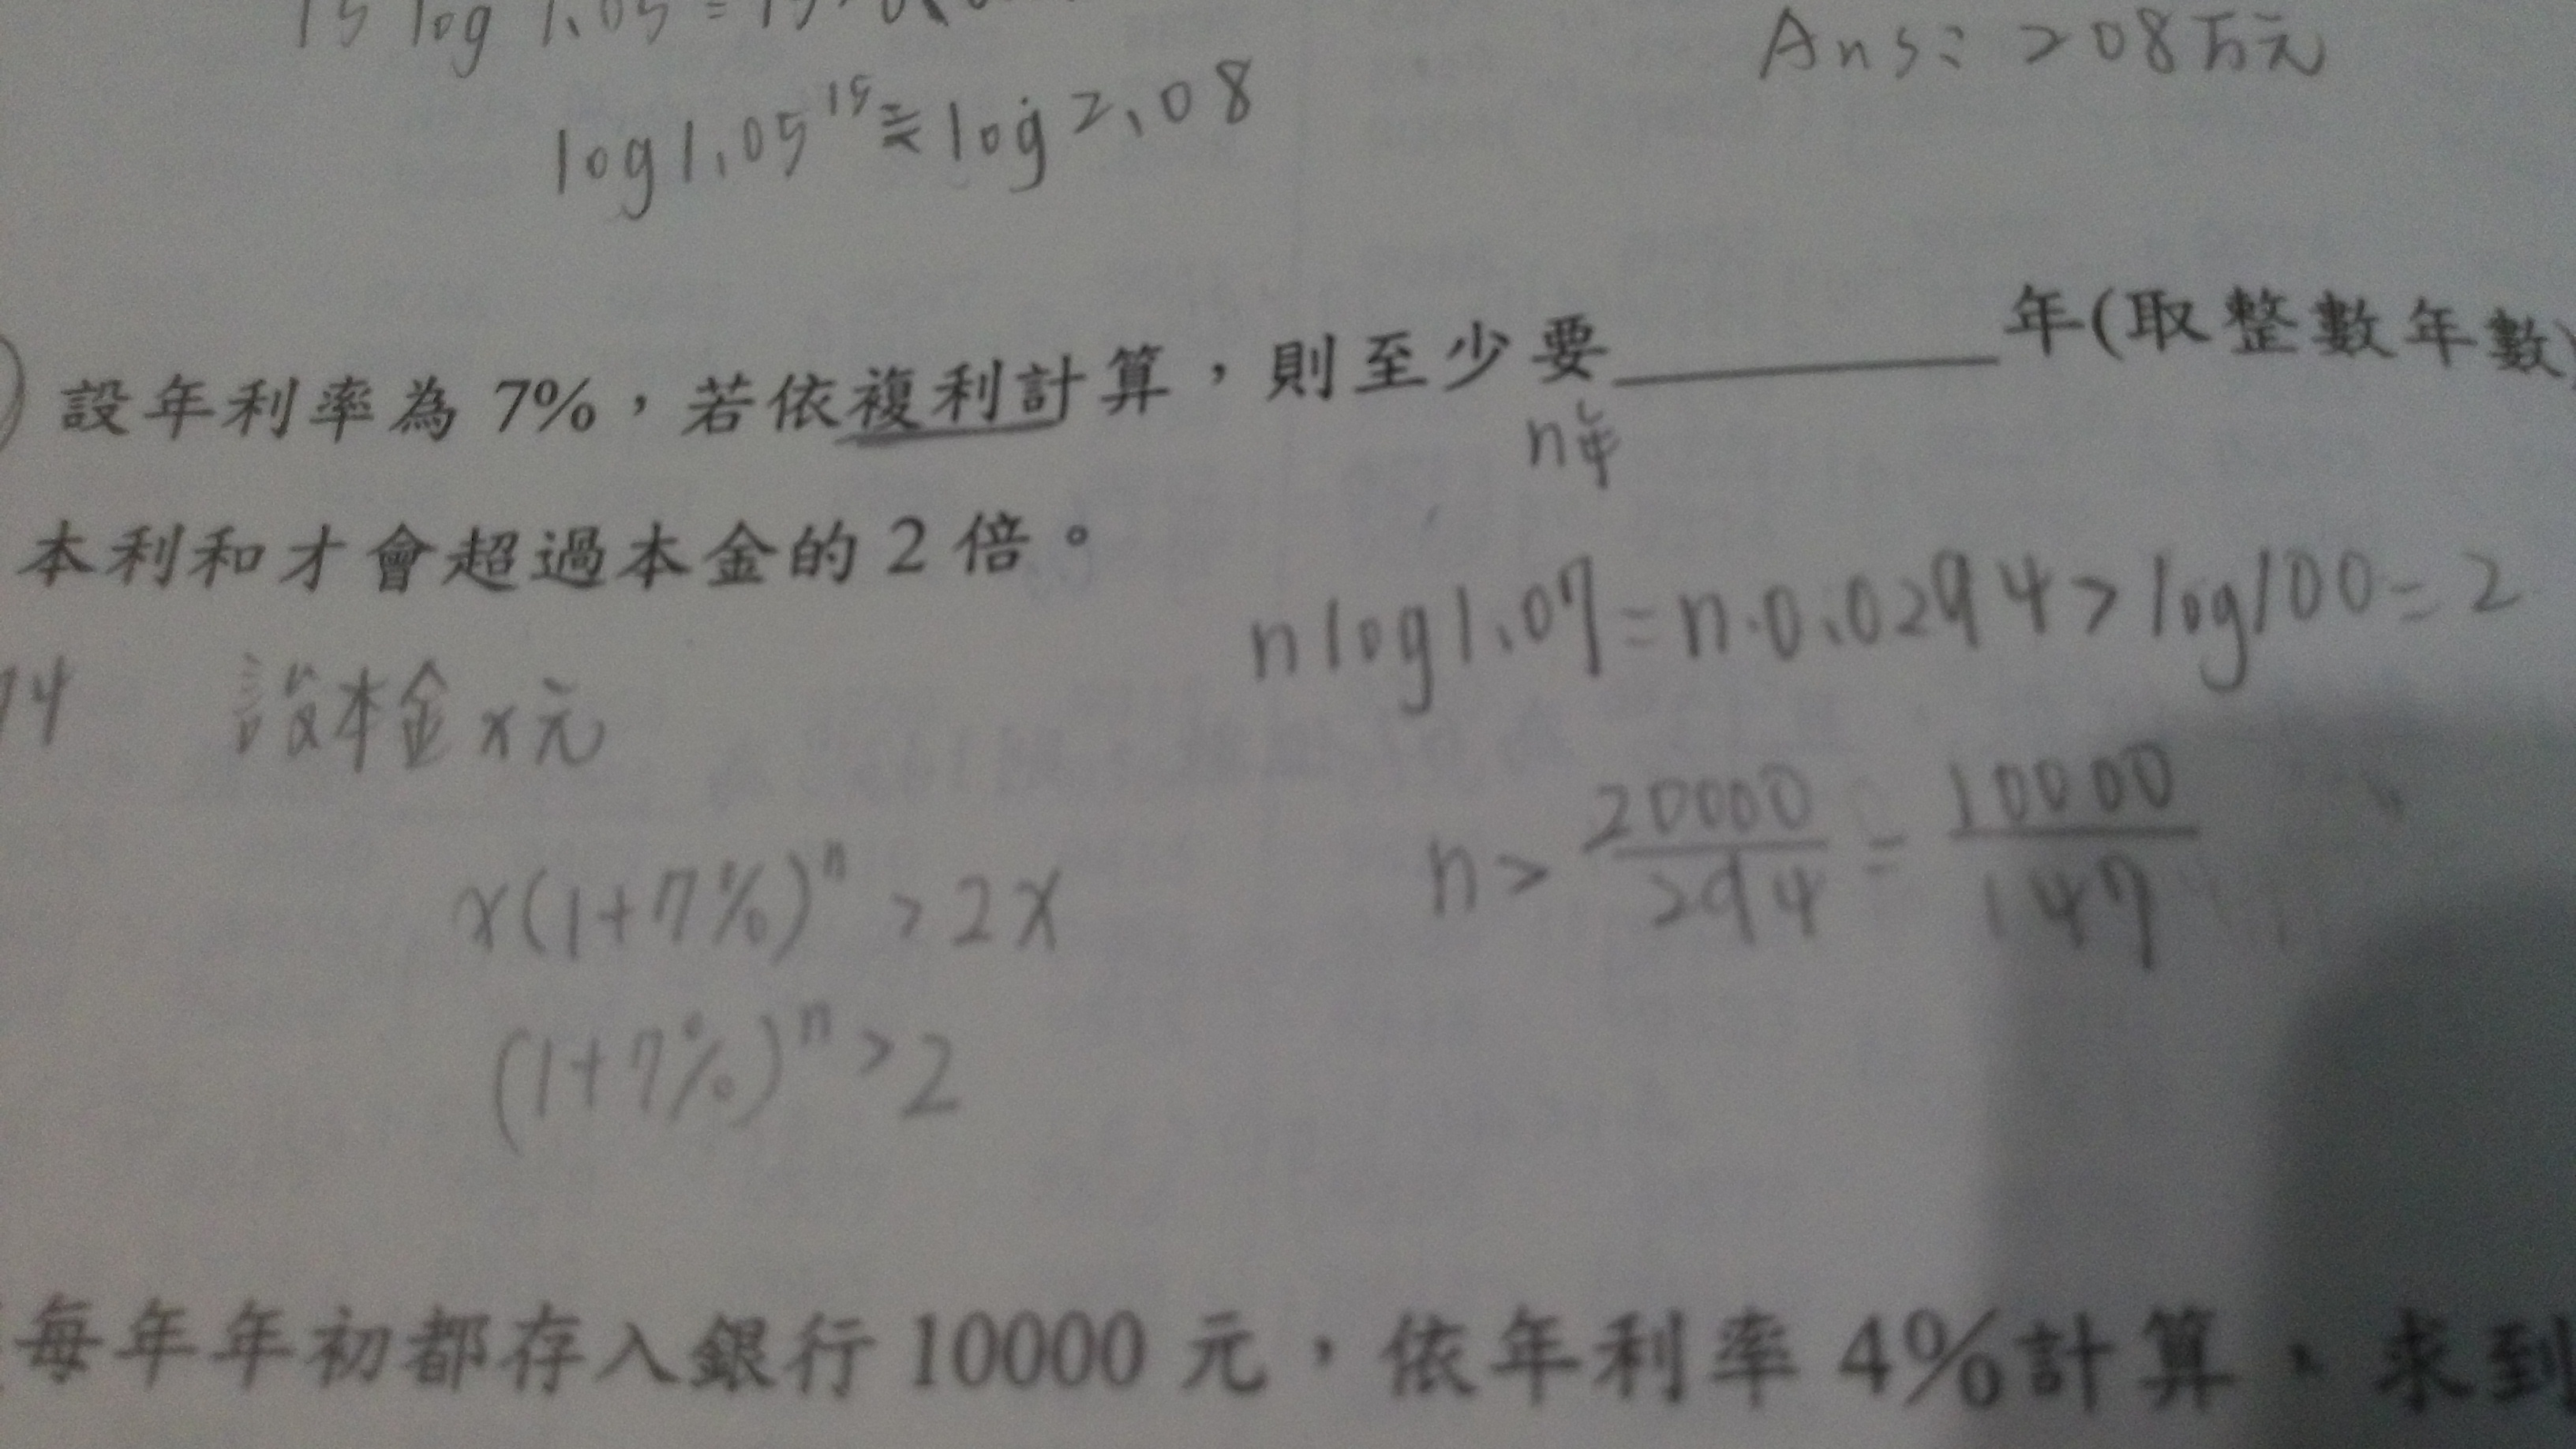 15 log 1.05 = 15 · 0.0
log 1.05¹⁵ ≒ log 2.08
Ans: 208万元
設年利率為 7%，若依複利計算，則至少要________年(取整數年數)
n年
本利和才會超過本金的 2 倍。
n log 1.07 = n · 0.0294 > log 100 = 2
14
設本金 x 元
n > 20000/294 = 10000/147
x(1+7%)ⁿ > 2x
(1+7%)ⁿ > 2
每年年初都存入銀行 10000 元，依年利率 4%計算，求到